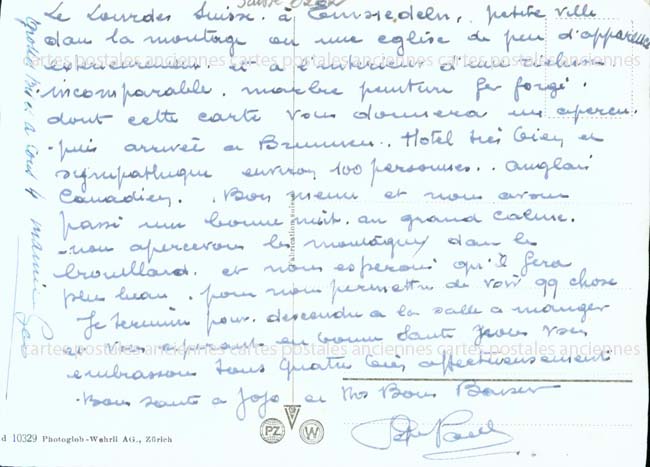 Le Lourdes Suisse. à Einsiedeln, petite ville
dans la montagne ou une eglise de peu d'apparence
exterieurement et a l'interieur d'une richesse
incomparable. marbre peinture fer forgé.
dont cette carte vous donnera un apercu.
puis arrivée a Brunnen. Hotel très bien et
sympathique environ 100 personnes.. anglais
Canadien. Bon menu et nous avons
passé une bonne nuit. au grand calme.
nous apercevons les montagnes dans le
brouillard. et nous esperons qu'il fera
plus beau. pour nous permettre de voir qq chose
Je termine pour descendre a la salle a manger
en vous esperant en bonne sante nous vous
embrassons tous quatre bien affectueusement
Bonne sante a Jojo et Nos Bons Baisers
Grosses Bises a tous 4
mamie
Fabrication suisse
cartes postales anciennes cartes postales anciennes cartes postales anciennes
cartes postales anciennes cartes postales anciennes cartes postales anciennes
d 10329 Photoglob-Wehrli AG., Zürich
PZ W